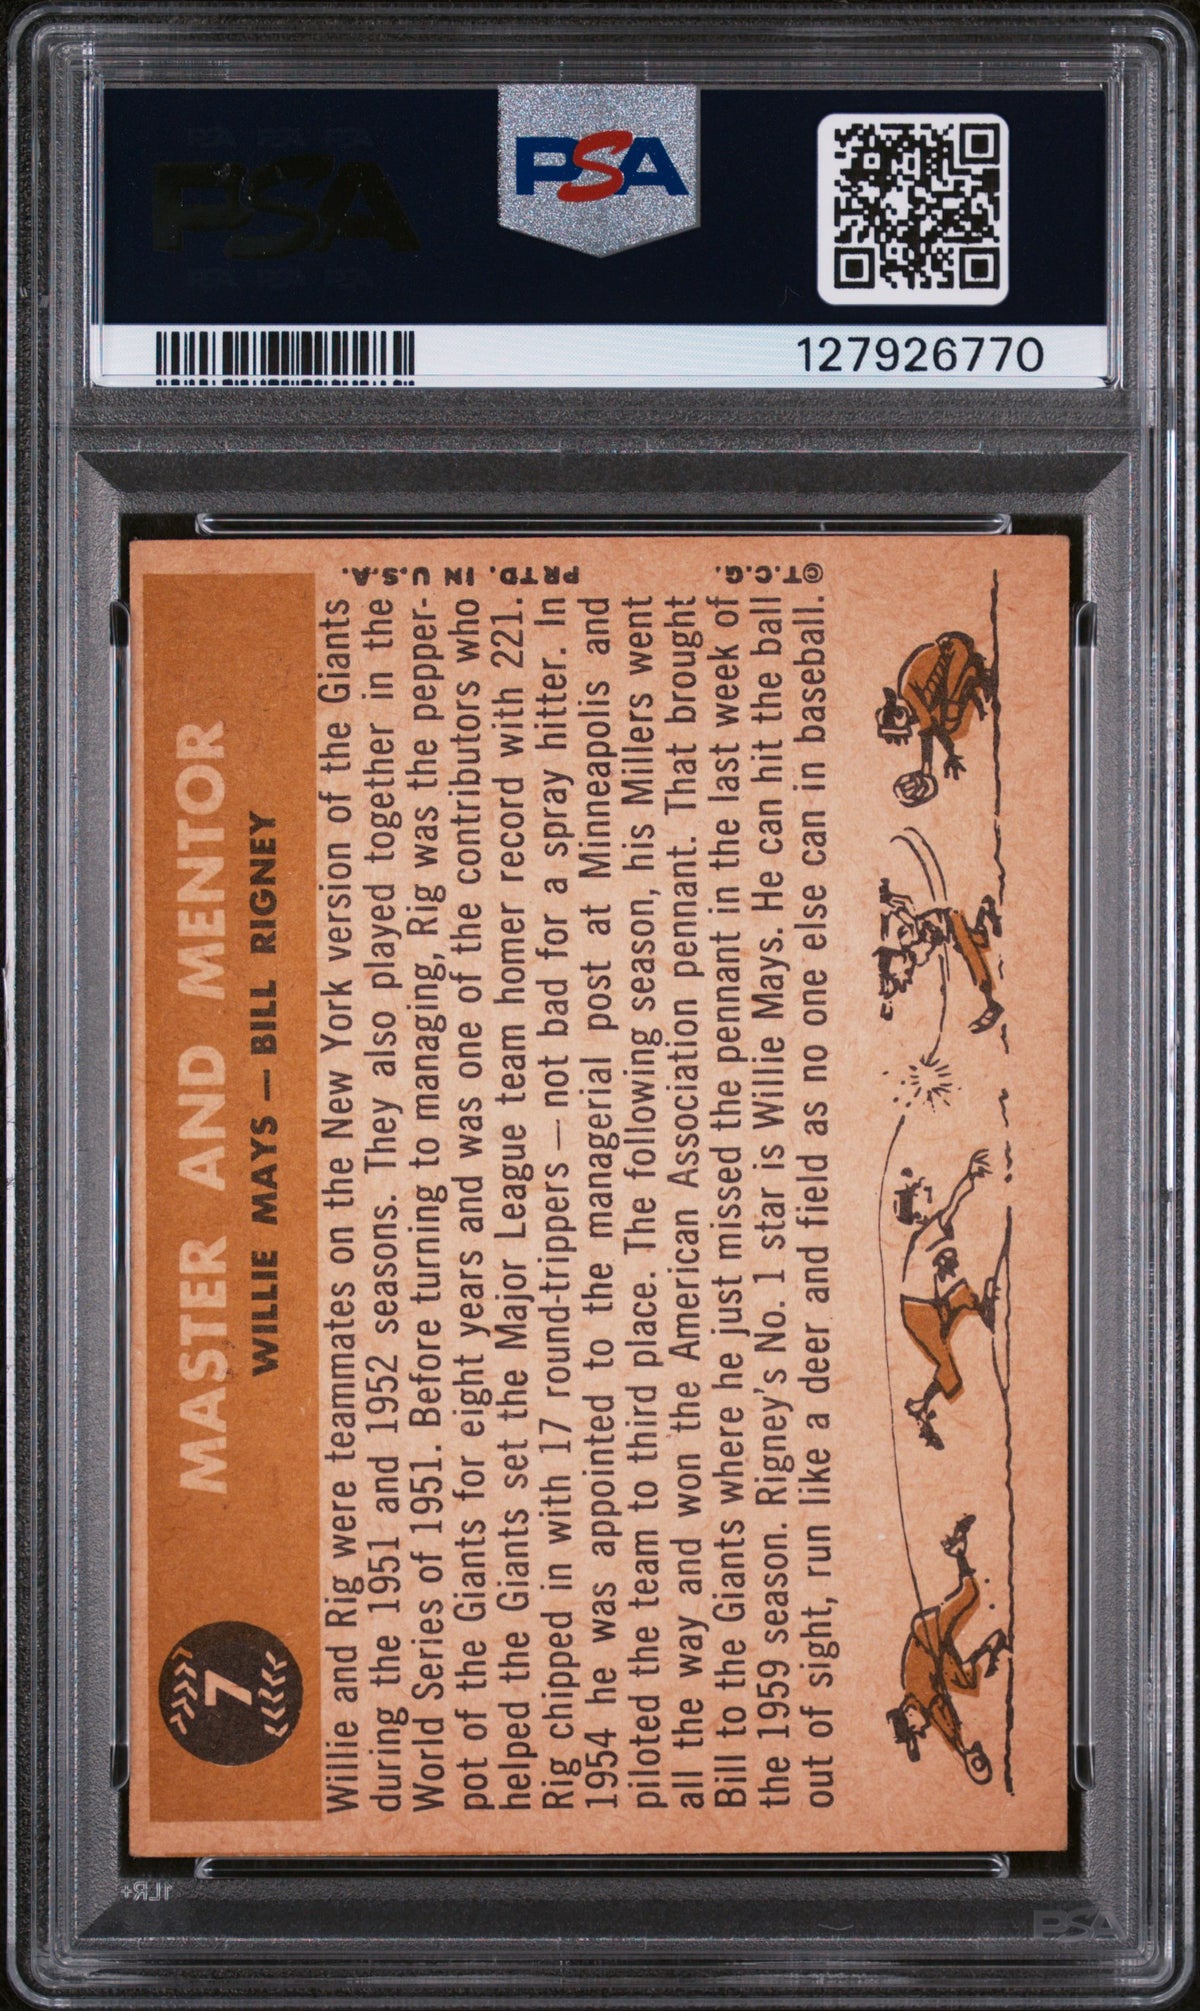 PSA
PSA
127926770
7
MASTER AND MENTOR
WILLIE MAYS — BILL RIGNEY
Willie and Rig were teammates on the New York version of the Giants
during the 1951 and 1952 seasons. They also played together in the
World Series of 1951. Before turning to managing, Rig was the pepper-
pot of the Giants for eight years and was one of the contributors who
helped the Giants set the Major League team homer record with 221.
Rig chipped in with 17 round-trippers — not bad for a spray hitter. In
1954 he was appointed to the managerial post at Minneapolis and
piloted the team to third place. The following season, his Millers went
all the way and won the American Association pennant. That brought
Bill to the Giants where he just missed the pennant in the last week of
the 1959 season. Rigney's No. 1 star is Willie Mays. He can hit the ball
out of sight, run like a deer and field as no one else can in baseball.
©T.C.G. PRTD. IN U.S.A.
1LR+
PSA